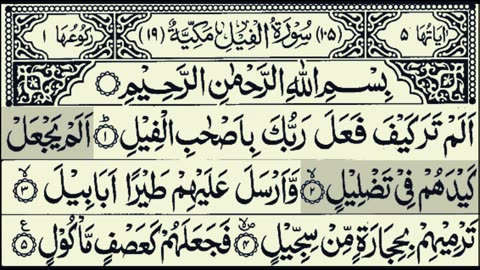 اٰيَاتُهَا ٥ (١٠٥) سُوْرَةُ الْفِيْلِ مَكِّيَّةٌ (١٩) رُكُوْعُهَا ١
بِسْمِ اللّٰهِ الرَّحْمٰنِ الرَّحِيْمِ
اَلَمْ تَرَ كَيْفَ فَعَلَ رَبُّكَ بِاَصْحٰبِ الْفِيْلِ ؕ﴿۱﴾ اَلَمْ يَجْعَلْ
كَيْدَهُمْ فِيْ تَضْلِيْلٍ ۙ﴿۲﴾ وَّاَرْسَلَ عَلَيْهِمْ طَيْرًا اَبَابِيْلَ ۙ﴿۳﴾
تَرْمِيْهِمْ بِحِجَارَةٍ مِّنْ سِجِّيْلٍ ۪ۙ﴿۴﴾ فَجَعَلَهُمْ كَعَصْفٍ مَّاْكُوْلٍ ﴿۵﴾ ع